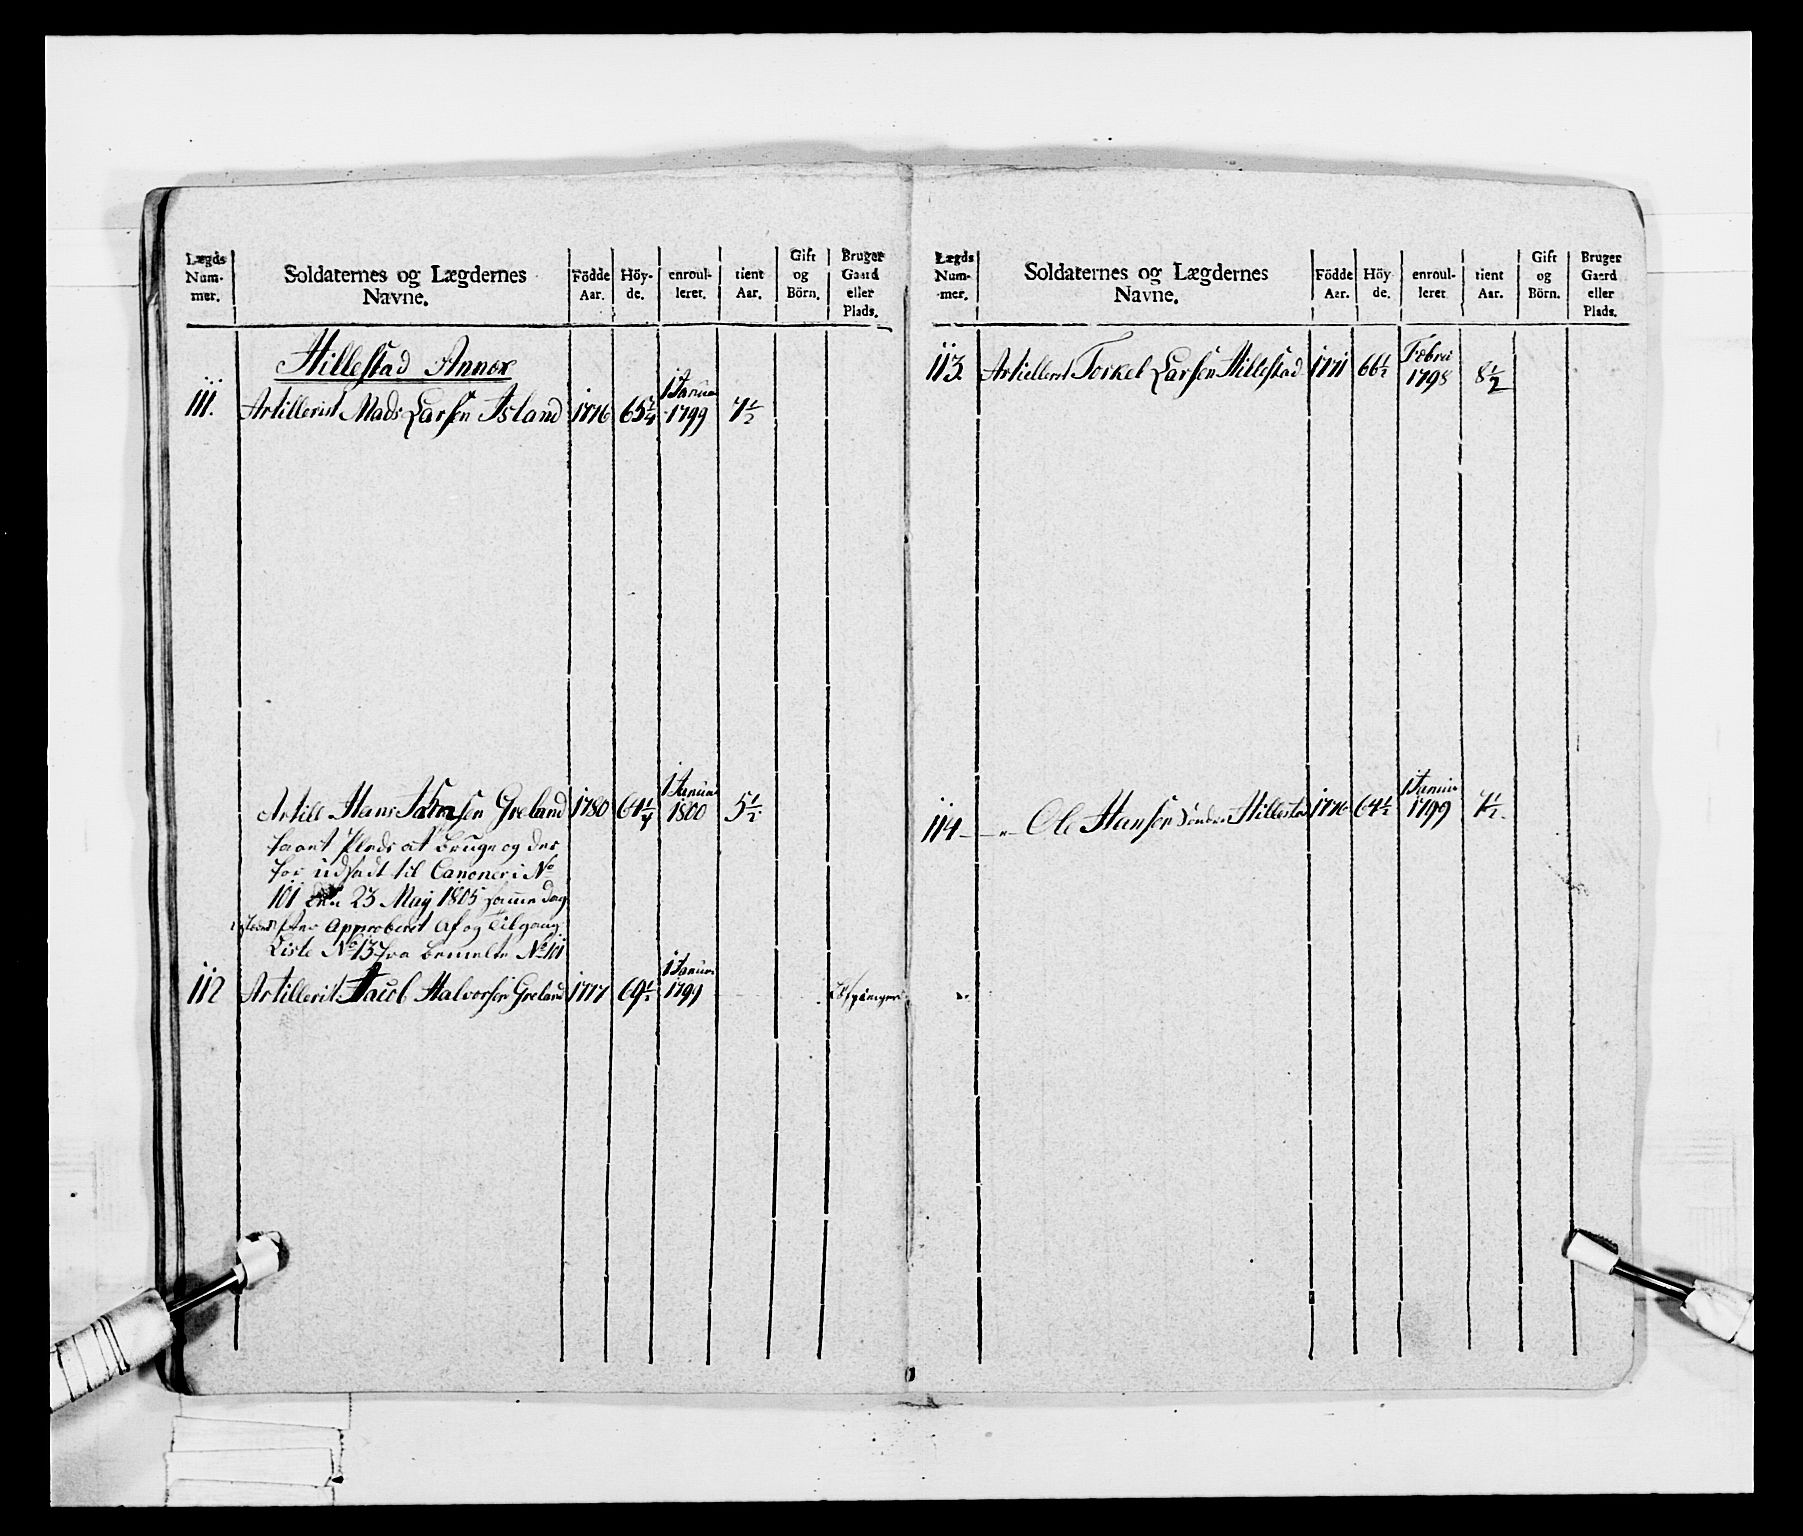 Lægds Num-mer. Soldaternes og Lægdernes Navne. Födde Aar. Höy-de. enroul-leret. tient Aar. Gift og Börn. Bruger Gaard eller Plads.
Hillestad Annex
111. Artillerist Mads Larsen Island 1776 65 3/4 1 Janua 1799 7 1/2
Artill Hans Jahnsen Greland 1780 64 1/4 1 Janua 1800 5 1/2
faaet Plads at bruge og der
for udsadt til Canoneri No
101 den 23 May 1805 samme dag
efter Approberet Af og Tilgang
Liste No 13 fra bemelte No 101
112 Artillerist Jacob Halvorsen Greland 1777 69 1/2 1 Janua 1799
Lægds Num-mer. Soldaternes og Lægdernes Navne. Födde Aar. Höy de. enroul-leret tient Aar. Gift og Börn. Bruger Gaard eller Plads.
113. Artillerist Torkel Larsen Hillestad 1771 66 1/2 Febru 1798 8 1/2
114 - " - Ole Hansen Søndre Hillestad 1776 64 1/2 1 Janua 1799 7 1/2.